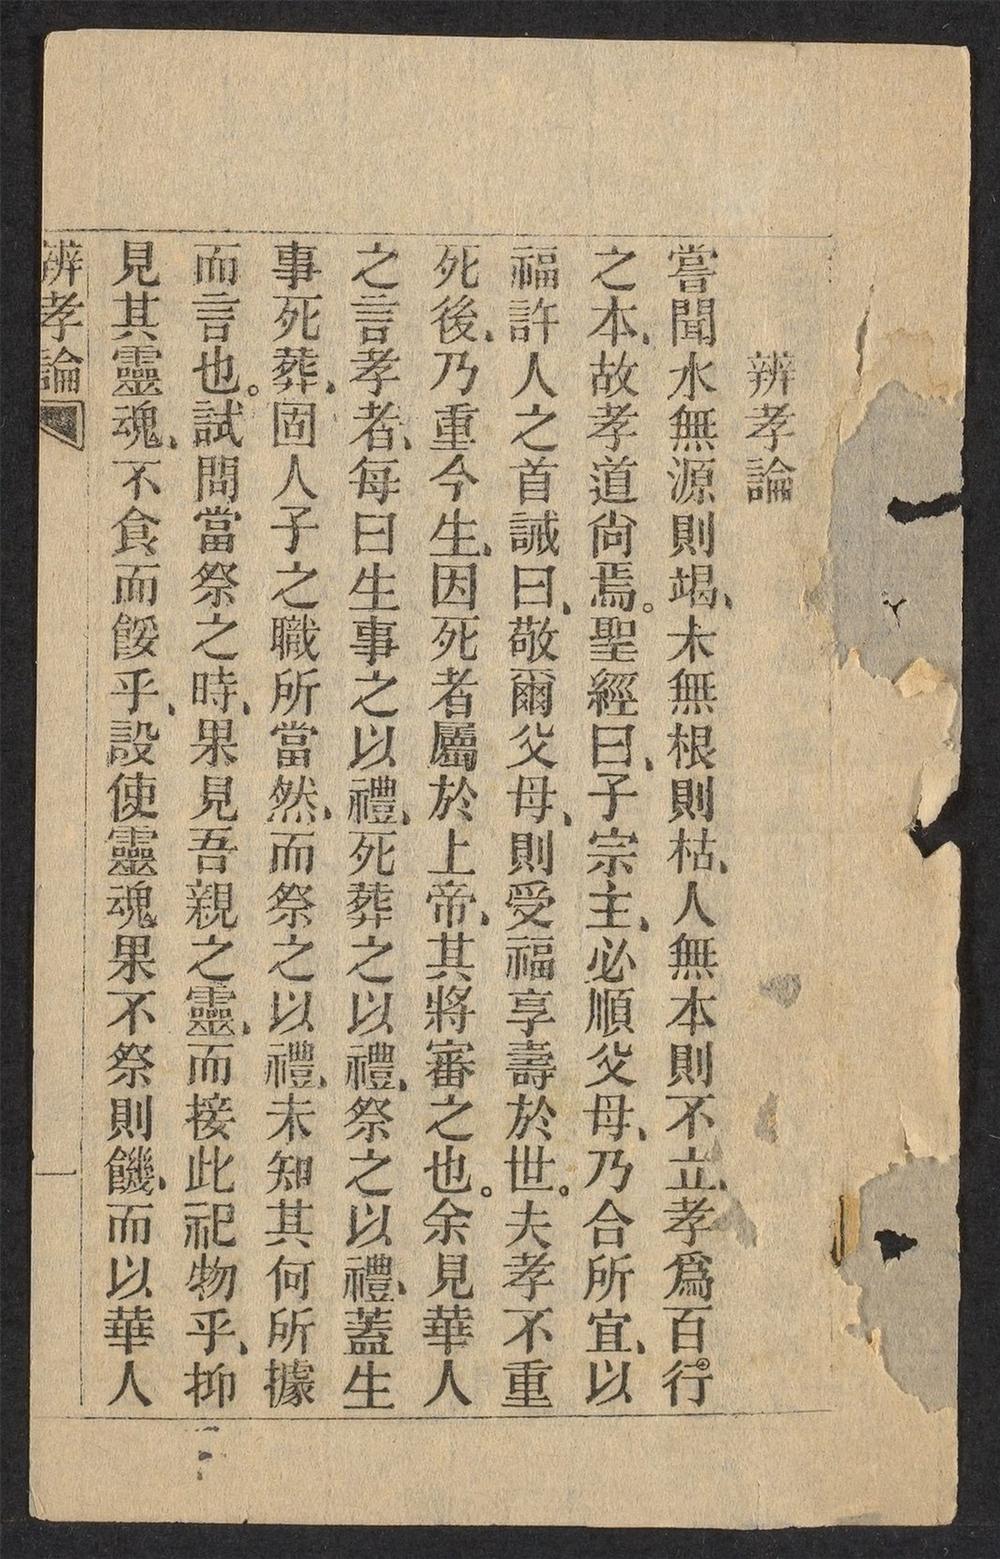 辨孝論
嘗聞水無源則竭、木無根則枯、人無本則不立、孝爲百行
之本、故孝道尙焉。聖經曰、子宗主、必順父母、乃合所宜、以
福許人之首誡曰、敬爾父母、則受福享壽於世。夫孝不重
死後、乃重今生、因死者屬於上帝、其將審之也。余見華人
之言孝者、每曰生事之以禮、死葬之以禮、祭之以禮、蓋生
事死葬、固人子之職所當然、而祭之以禮、未知其何所據
而言也。試問當祭之時、果見吾親之靈、而接此祀物乎、抑
見其靈魂、不食而餒乎、設使靈魂果不祭則饑、而以華人
辨孝論
一